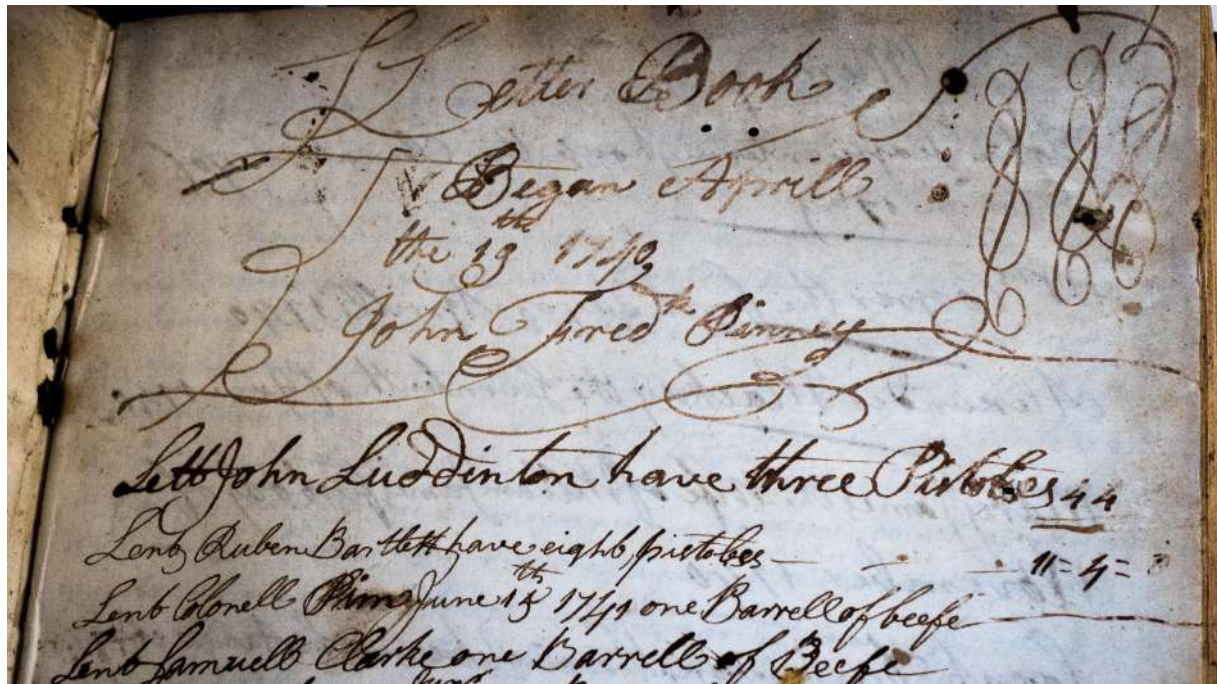 Letter Book
Began Aprill
the 19th 1740
John Fredk Pinney
Lett John Luddinton have three Pistoles 44
Lent Ruben Bartlett have eight pistoles 11=4=
Lent Colonell Pim June 15th 1741 one Barrell of beefe
Lent Samuell Clarke one Barrell of Beefe